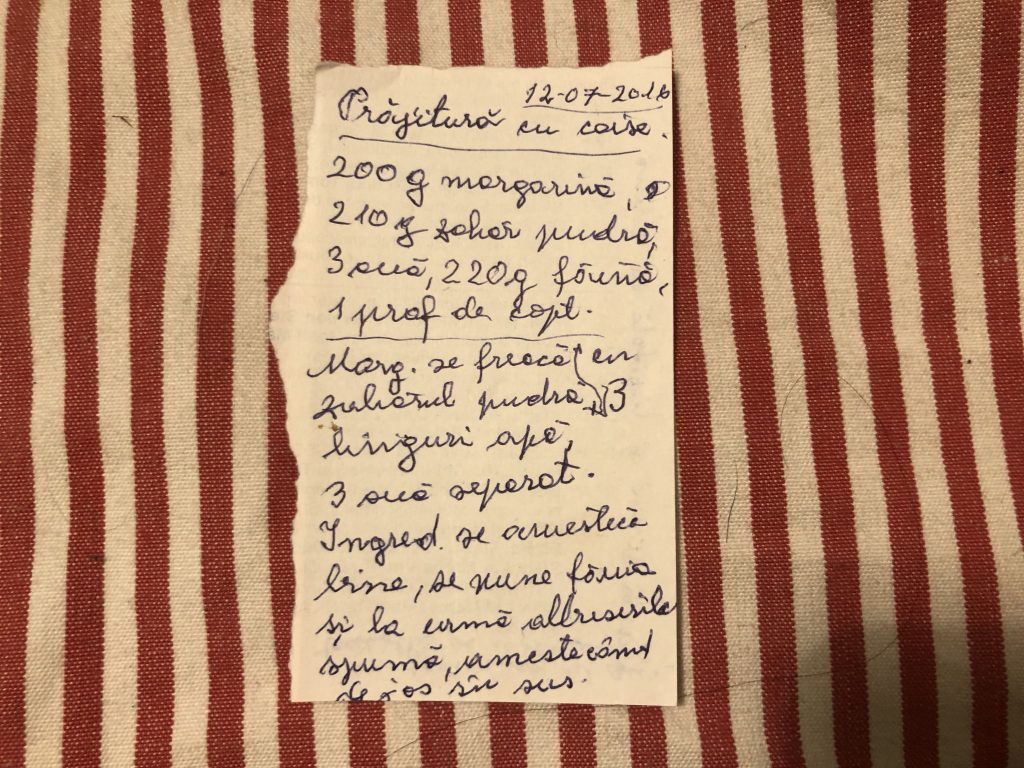 12-07-2016
Prăjitură cu caise.
200 g margarină,
210 g zahăr pudră,
3 ouă, 220g făină,
1 praf de copt.
Marg. se freacă cu
zahărul pudră, 3
linguri apă,
3 ouă separat.
Ingred. se amestecă
bine, se pune făina
și la urmă albușurile
spumă, amestecând
de jos în sus.